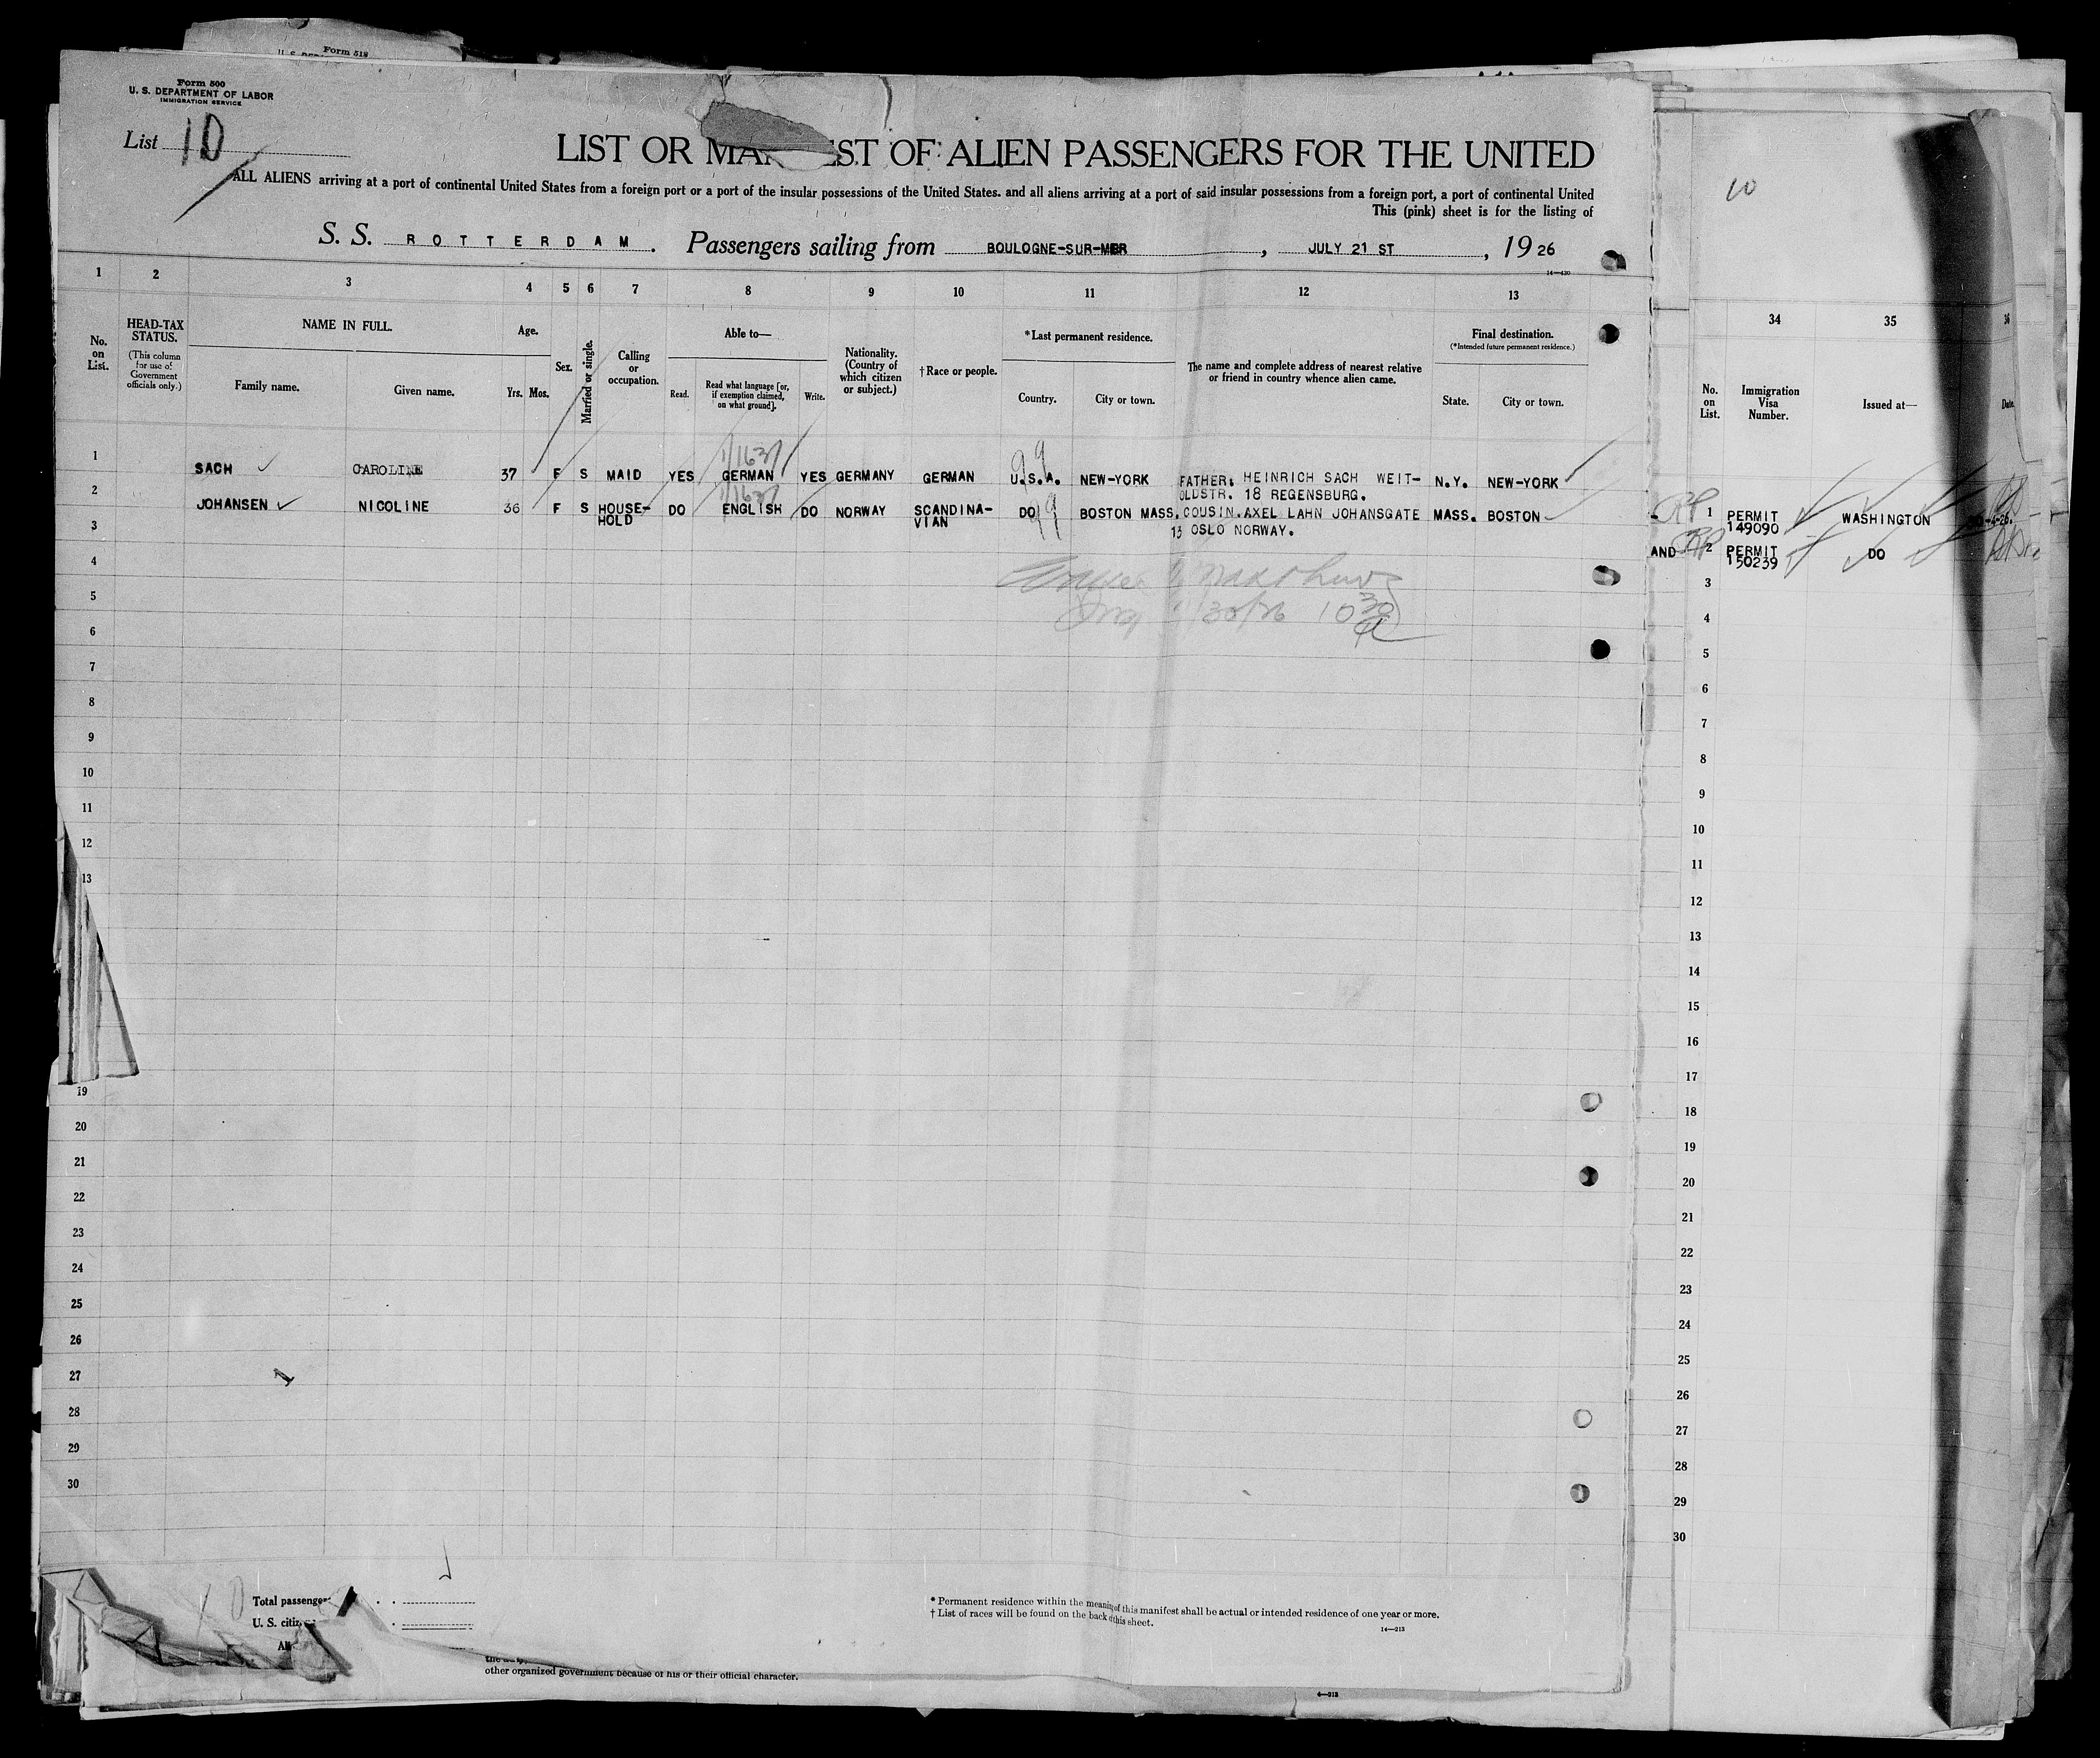 Form 518
Form 500
U. S. DEPARTMENT OF LABOR
IMMIGRATION SERVICE
List 10
LIST OR MAN EST OF ALIEN PASSENGERS FOR THE UNITED
ALL ALIENS arriving at a port of continental United States from a foreign port or a port of the insular possessions of the United States, and all aliens arriving at a port of said insular possessions from a foreign port, a port of continental United
This (pink) sheet is for the listing of
S. S. ROTTERDAM. Passengers sailing from BOULOGNE-SUR-MER, JULY 21 ST, 1926
14—430
1 2 3 4 5 6 7 8 9 10 11 12 13
No. on List.
HEAD-TAX STATUS.
(This column for use of Government officials only.)
NAME IN FULL.
Family name.
Given name.
Age.
Yrs. Mos.
Sex.
Married or single.
Calling or occupation.
Able to—
Read.
Read what language [or, if exemption claimed, on what ground].
Write.
Nationality. (Country of which citizen or subject.)
† Race or people.
*Last permanent residence.
Country.
City or town.
The name and complete address of nearest relative or friend in country whence alien came.
Final destination.
(*Intended future permanent residence.)
State.
City or town.
1 SACH CAROLINE 37 F S MAID YES GERMAN YES GERMANY GERMAN U.S.A. NEW-YORK FATHER: HEINRICH SACH WEIT- N.Y. NEW-YORK
OLDSTR. 18 REGENSBURG.
2 JOHANSEN NICOLINE 36 F S HOUSE- DO ENGLISH DO NORWAY SCANDINA- DO BOSTON MASS. COUSIN.AXEL LAHN JOHANSGATE MASS. BOSTON
HOLD VIAN 13 OSLO NORWAY.
3
4
5
30/26 10 30 a
6
7
8
9
10
11
12
13
19
20
21
22
23
24
25
26
27
28
29
30
10
Total passenger
U. S. citiz
Al
* Permanent residence within the meaning of this manifest shall be actual or intended residence of one year or more.
† List of races will be found on the back of this sheet.
14—213
other organized government because of his or their official character.
10
34 35 36
No. on List.
Immigration Visa Number.
Issued at—
Date.
1 PERMIT 149090 WASHINGTON
AND 2 PERMIT 150239 DO
3
4
5
6
7
8
9
10
11
12
13
14
15
16
17
18
19
20
21
22
23
24
25
26
27
28
29
30